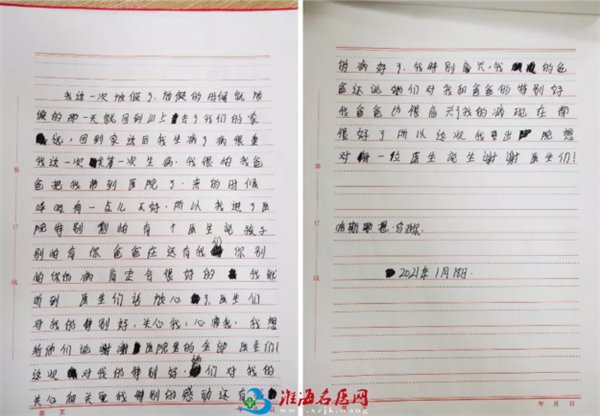 我这一次放假了，放假的时候就放
假的那一天就回到山上去了我们的家
远，回到家这后我生病了病很重
我这一次第一次生病，我很怕我爸
爸把我带到医院了，来的时候
呼吸有一点儿不好，所以我进了医
院特别害怕有个医生说孩子
别怕有你爸爸在还有我们你别
怕你的病肯定会很好的我就
听到医生们话放心了，医生们
对我的特别好，关心我，心疼我，我想
给你们说谢谢医院里的全部医生们！
这次对我的特别好，们对我的
关心和关爱我特别的感动还有
的病好了，我特别高兴，我的爸
爸还说她们对我和爸爸的特别好
我爸爸也很高兴了我的病现在都
很好了所以这次我出院想
对每一位医生说生谢谢医生们！
2021年1月18日.
年 月 日
淮海名医网
www.xzjk.wang